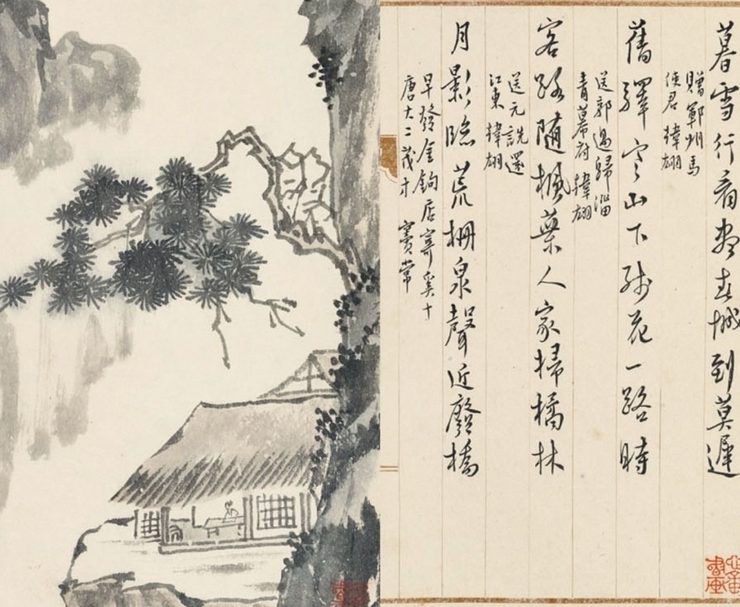 暮雪行看盡春城到莫遲
贈鄆州馬
使君 韓翃
舊驛千山下殘花一路時
送郭過歸淄
青幕府 韓翃
客路隨楓葉人家掃橘林
送元詵還
江東 韓翃
月影臨荒柵泉聲近廢橋
早發金鉤店寄奚十
唐大二茂才 竇常